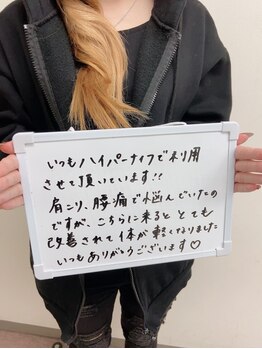 いつもハイパーナイフで利用
させて頂いています!!
肩こり、腰痛で悩んでいたの
ですが、こちらに来ると とても
改善されて体が軽くなりました
いつもありがとうございます♡